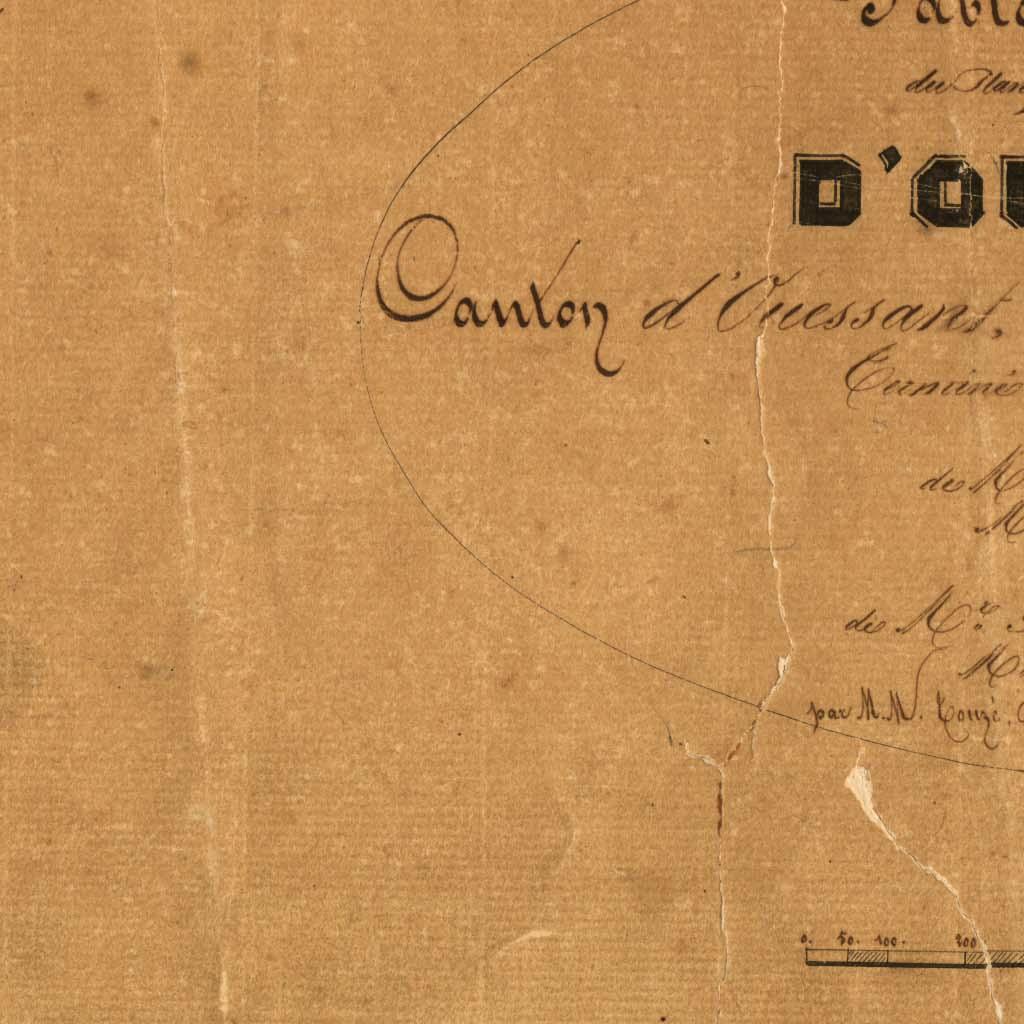 du Plan
D'OU
Canton d'Ouessant,
Terminé
de M
M
de Mr.
M
par M.M. Touzé,
0. 50. 100. 200